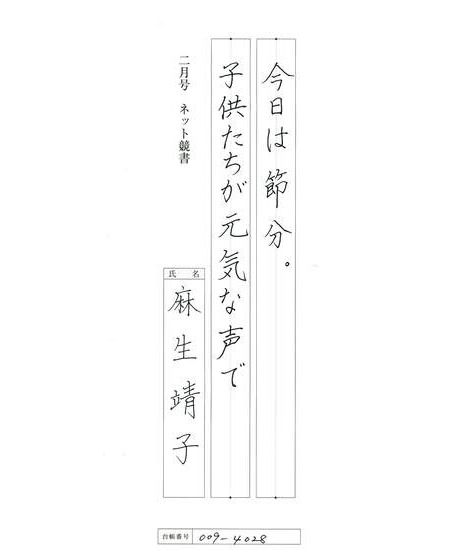 今日は節分。
子供たちが元気な声で
二月号 ネット競書
氏名
麻生靖子
台帳番号 009-4028